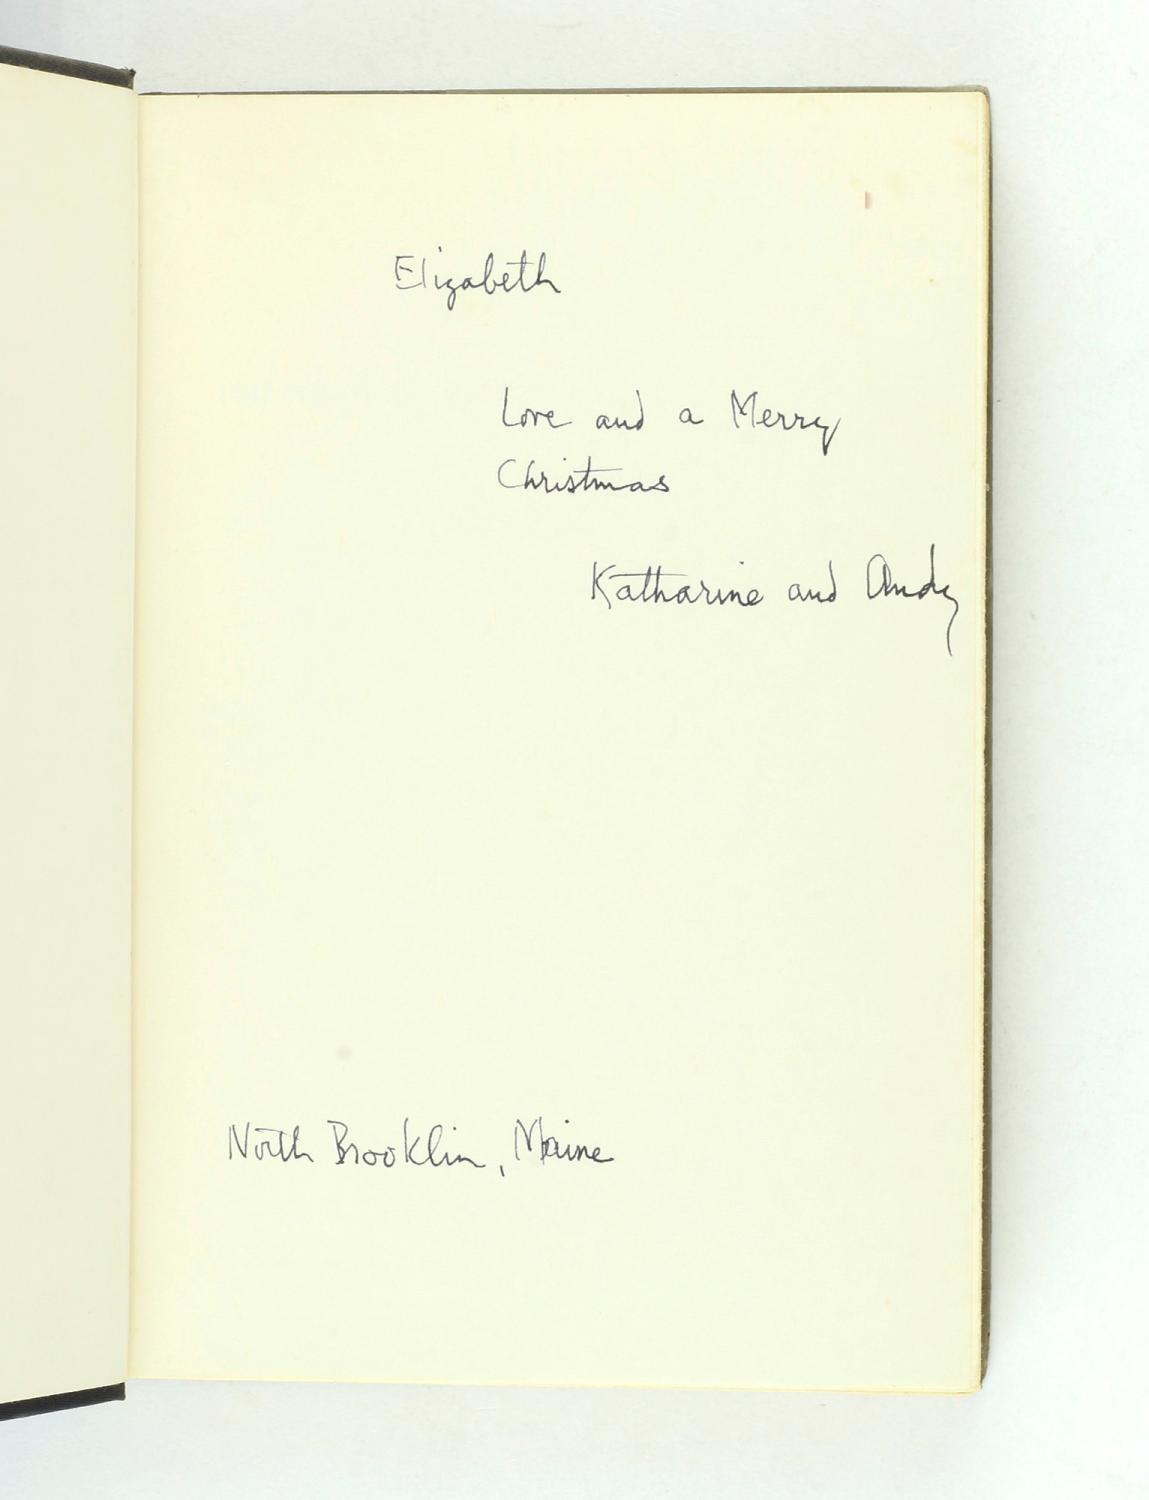 Elizabeth
Love and a Merry
Christmas
Katharine and Andy
North Brooklin, Maine